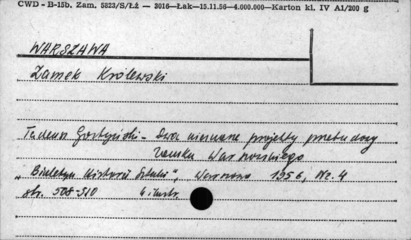 CWD - B-15b. Zam. 5823/S/Łź — 3016—Łak—15.11.56—4.000.000—Karton kl. IV A1/200 g
WARSZAWA
Zamek Królewski
Tadeusz Gostyński - Dwa nieznane projekty przebudowy
Zamku Warszawskiego
"Biuletyn Historii Sztuki", Warszawa 1956, Nr. 4
str. 508-510 4 ilustr.